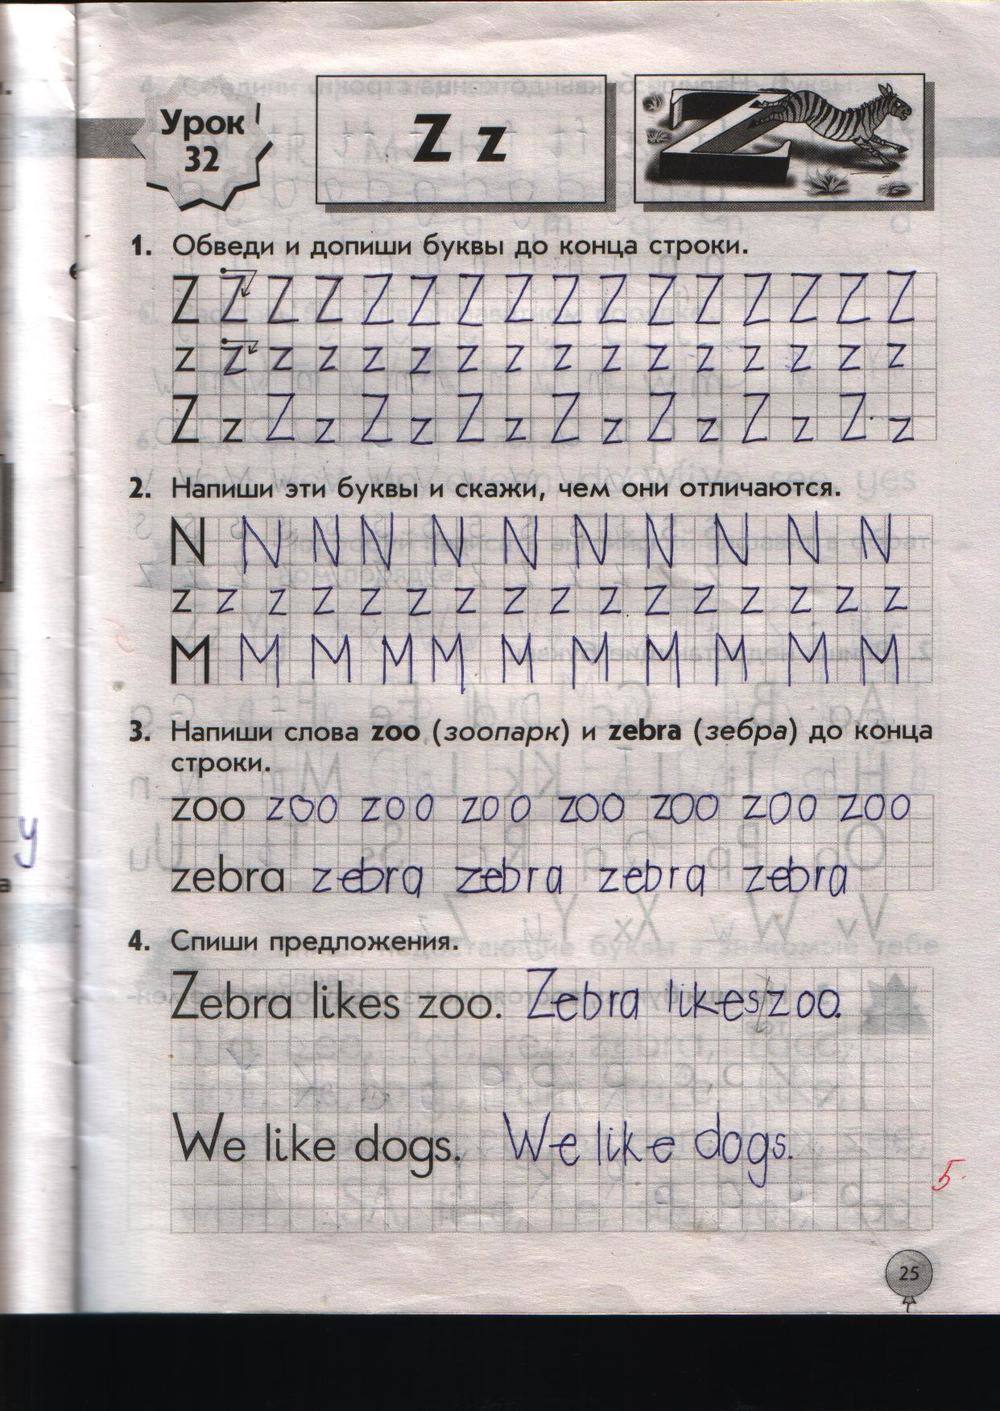 Урок
32
Z z
1. Обведи и допиши буквы до конца строки.
Z Z Z Z Z Z Z Z Z Z Z Z Z Z Z Z
z z z z z z z z z z z z z z z z
Z z Z z Z z Z z Z z Z z Z z Z z
2. Напиши эти буквы и скажи, чем они отличаются.
N N N N N N N N N N N
z z z z z z z z z z z z z z z z
M M M M M M M M M M M
3. Напиши слова zoo (зоопарк) и zebra (зебра) до конца
строки.
zoo zoo zoo zoo zoo zoo zoo zoo
zebra zebra zebra zebra zebra
4. Спиши предложения.
Zebra likes zoo. Zebra likes/zoo.
We like dogs. We like dogs.
5
25